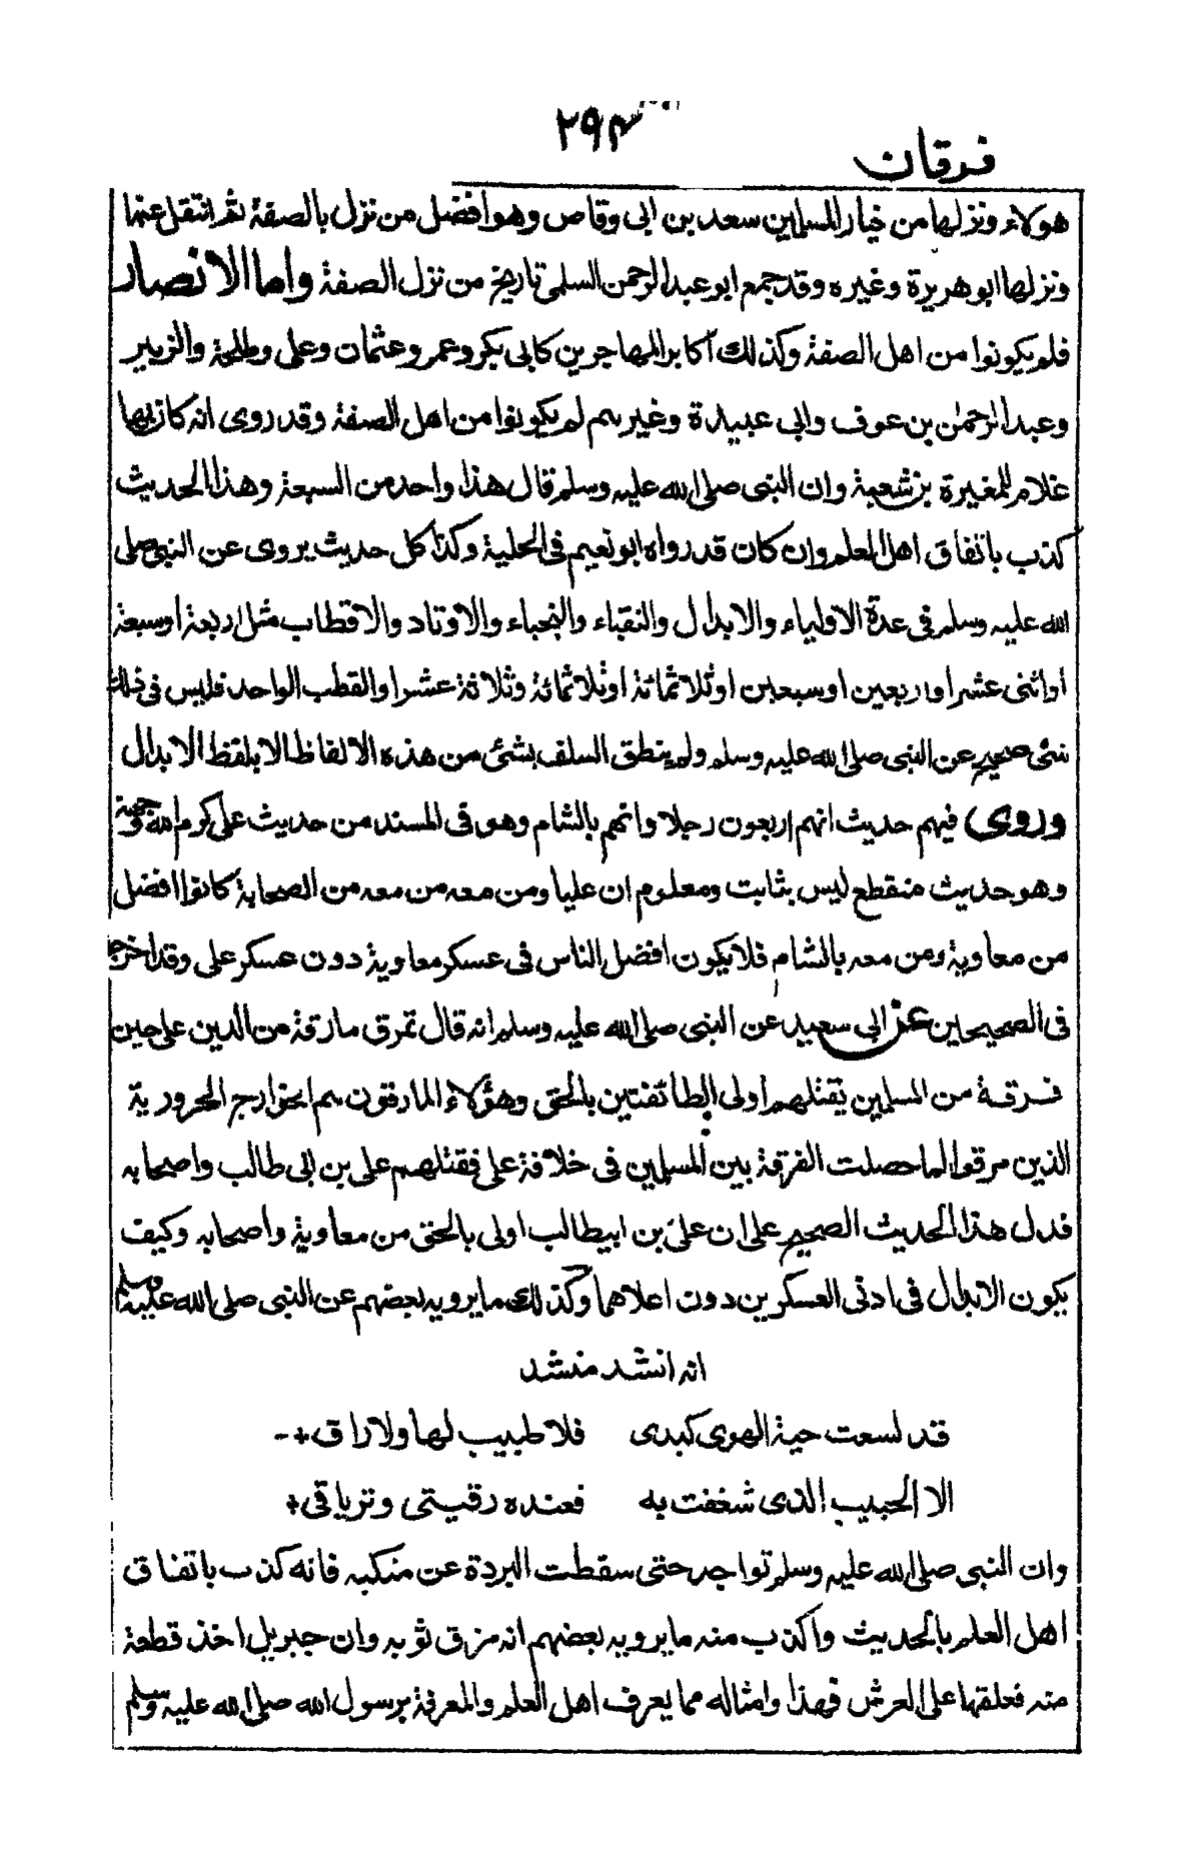 ۲۹۴
فرقان
هولاء ونزلها من خيار المسلمين سعد بن ابی وقاص وهو افضل من نزل بالصفة ثم انتقل عنها
ونزلها ابو هريرة وغيره وقد جمع ابو عبد الرحمن السلمی تاريخ من نزل الصفة واما الانصار
فلم يكونوا من اهل الصفة وكذلك اكابر المهاجرين كابی بكر وعمر وعثمان وعلی وطلحة والزبير
وعبد الرحمن بن عوف وابی عبيدة وغيرهم لم يكونوا من اهل الصفة وقد روی انه كان بها
غلام للمغيرة بن شعبة وان النبی صلی الله عليه وسلم قال هذا واحد من السبعة وهذا الحديث
كذب باتفاق اهل العلم وان كان قد رواه ابو نعيم فی الحلية وكذا كل حديث يروی عن النبی صلی
الله عليه وسلم فی عدة الاولياء والابدال والنقباء والنجباء والاوتاد والاقطاب مثل اربعة او سبعة
او اثنی عشر او اربعين او سبعين او ثلاثمائة او ثلاثمائة وثلاثة عشر او القطب الواحد فليس فی ذلك
شئ صحيح عن النبی صلی الله عليه وسلم ولم ينطق السلف بشئ من هذه الالفاظ الا بلفظ الابدال
وروی فيهم حديث انهم اربعون رجلا وانهم بالشام وهو فی المسند من حديث علی كرم الله وجهه
وهو حديث منقطع ليس بثابت ومعلوم ان عليا ومن معه من معه من الصحابة كانوا افضل
من معاوية ومن معه بالشام فلا يكون افضل الناس فی عسكر معاوية دون عسكر علی وقد اخرجا
فی الصحيحين عن ابی سعيد عن النبی صلی الله عليه وسلم انه قال تمرق مارقة من الدين علی حين
فرقة من المسلمين يقتلهم اولی الطائفتين بالحق وهؤلاء المارقون هم الخوارج الحرورية
الذين مرقوا لما حصلت الفرقة بين المسلمين فی خلافة علی فقتلهم علی بن ابی طالب واصحابه
فدل هذا الحديث الصحيح علی ان علی بن ابيطالب اولی بالحق من معاوية واصحابه وكيف
يكون الابدال فی ادنی العسكرين دون اعلاهما وكذلك ما يرويه بعضهم عن النبی صلی الله عليه وسلم
انه انشد منشد
قد لسعت حية الهوی كبدی فلا طبيب لها ولا راق+-
الا الحبيب الذی شغفت به فعنده رقيتی وترياقی+
وان النبی صلی الله عليه وسلم تواجد حتی سقطت البردة عن منكبه فانه كذب باتفاق
اهل العلم بالحديث واكذب منه ما يرويه بعضهم انه مزق ثوبه وان جبريل اخذ قطعة
منه فعلقها علی العرش فهذا وامثاله مما يعرف اهل العلم والمعرفة برسول الله صلی الله عليه وسلم